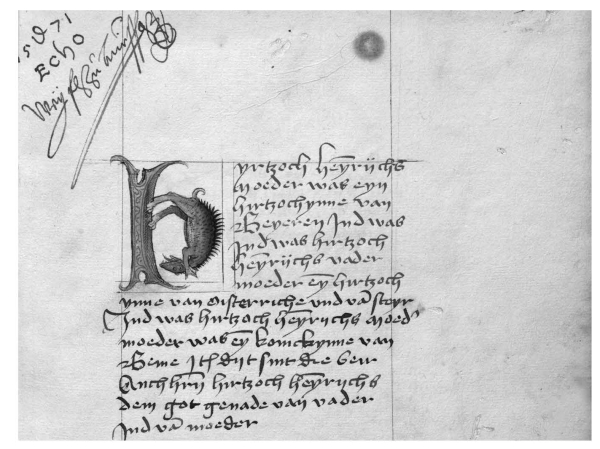 Echo
hyrtzoch heÿrijchs
moeder was eyn
hirtzochynne van
Beyeren Ind was
Ind was hirtzoch
heÿrijchs vader
moeder eÿ hirtzoch
ynne van Oisterriche vnd vā steyr
Ind was hirtzoch heÿrychs moed'
moeder was eÿ konickynne van
Beme Itē dijt sint die
hirtzoch heÿrychs
dem got genade van vader
Ind vā moeder